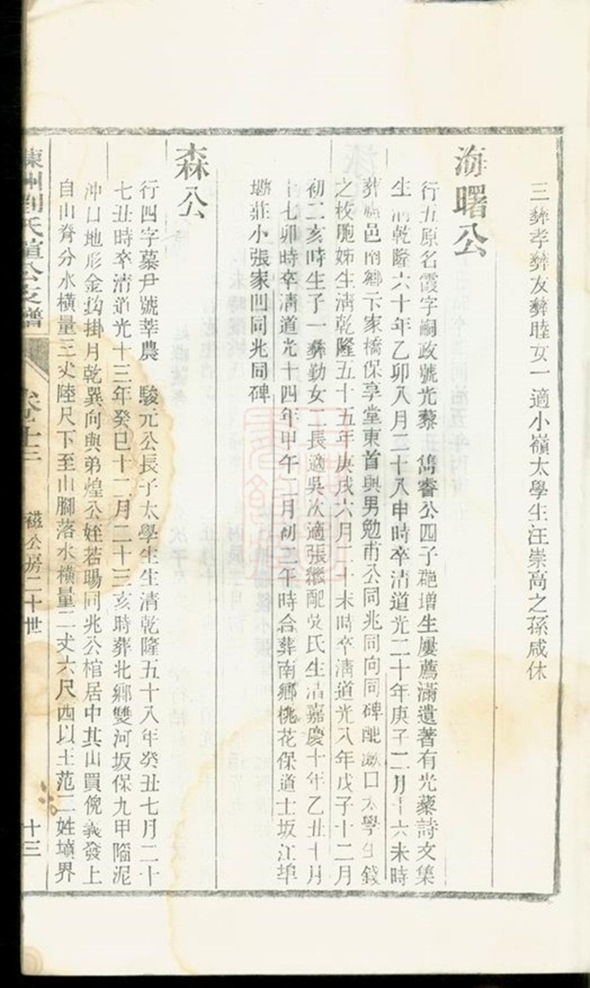 三彝孝彝友彝睦女一適小嶺太學生汪崇高之孫咸休
海曙公
行五原名霞字嗣政號光藜 雋睿公四子郡增生屢薦滿遺著有光藜詩文集
生清乾隆六十年乙卯八月二十八申時卒清道光二十年庚子二月十六未時
葬邑南鄉卞家橋保享堂東首與男勉甫公同兆同向同碑配口太學生錢
之枚胞姊生清乾隆五十五年庚戌六月二十未時卒清道光八年戊子十二月
初二亥時生子一彝勤女二長適吳次適張繼配吳氏生清嘉慶十年乙丑十月
十七卯時卒清道光十四年甲午月初二午時合葬南鄉桃花保道士坂江埠
壩莊小張家凹同兆同碑
森公
行四字慕尹號莘農 駿元公長子太學生生清乾隆五十八年癸丑七月二十
七丑時卒清道光十三年癸巳十二月二十三亥時葬北鄉雙河坂保九甲隘泥
沖口地形金鈎掛月乾巽向與弟煌公姪若暘同兆公棺居中其山買倪義發上
自山脊分水橫量三丈陸尺下至山腳落水橫量二丈六尺四以土范二姓墳界
劉氏公支譜 卷十三 磁公房二十世 十三